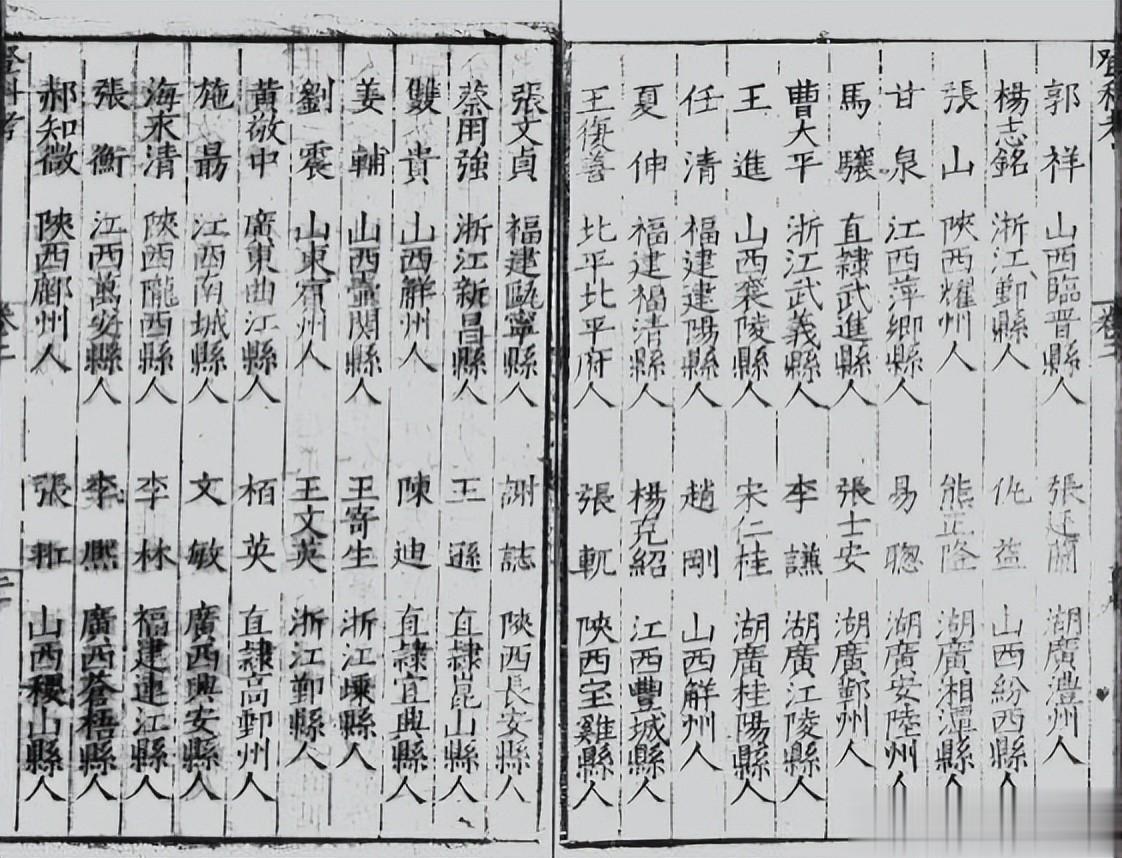 登科考
卷二
郭祥 山西臨晉縣人
張廷蘭 湖廣澧州人
楊志銘 浙江鄞縣人
仇益 山西汾西縣人
張山 陝西耀州人
熊正隆 湖廣湘潭縣人
甘泉 江西萍鄉縣人
易聰 湖廣安陸州人
馬驤 直隸武進縣人
張士安 湖廣鄞州人
曹大平 浙江武義縣人
李謙 湖廣江陵縣人
王進 山西襄陵縣人
宋仁桂 湖廣桂陽縣人
任清 福建建陽縣人
趙剛 山西觧州人
夏伸 福建福清縣人
楊克紹 江西豐城縣人
王復善 北平北平府人
張軏 陝西宝雞縣人
張文貞 福建甌寧縣人
謝誌 陝西長安縣人
蔡用強 浙江新昌縣人
王遜 直隸崑山縣人
雙貴 山西觧州人
陳迪 直隸宜興縣人
姜輔 山西壺関縣人
王寄生 浙江嵊縣人
劉震 山東宿州人
王文英 浙江鄞縣人
黃敬中 廣東曲江縣人
栢英 直隸高郵州人
施昜 江西南城縣人
文敏 廣西興安縣人
海來清 陝西隴西縣人
李林 福建連江縣人
張衡 江西萬安縣人
李熈 廣西蒼梧縣人
郝知微 陝西鄜州人
張 山西稷山縣人
登科考
卷二